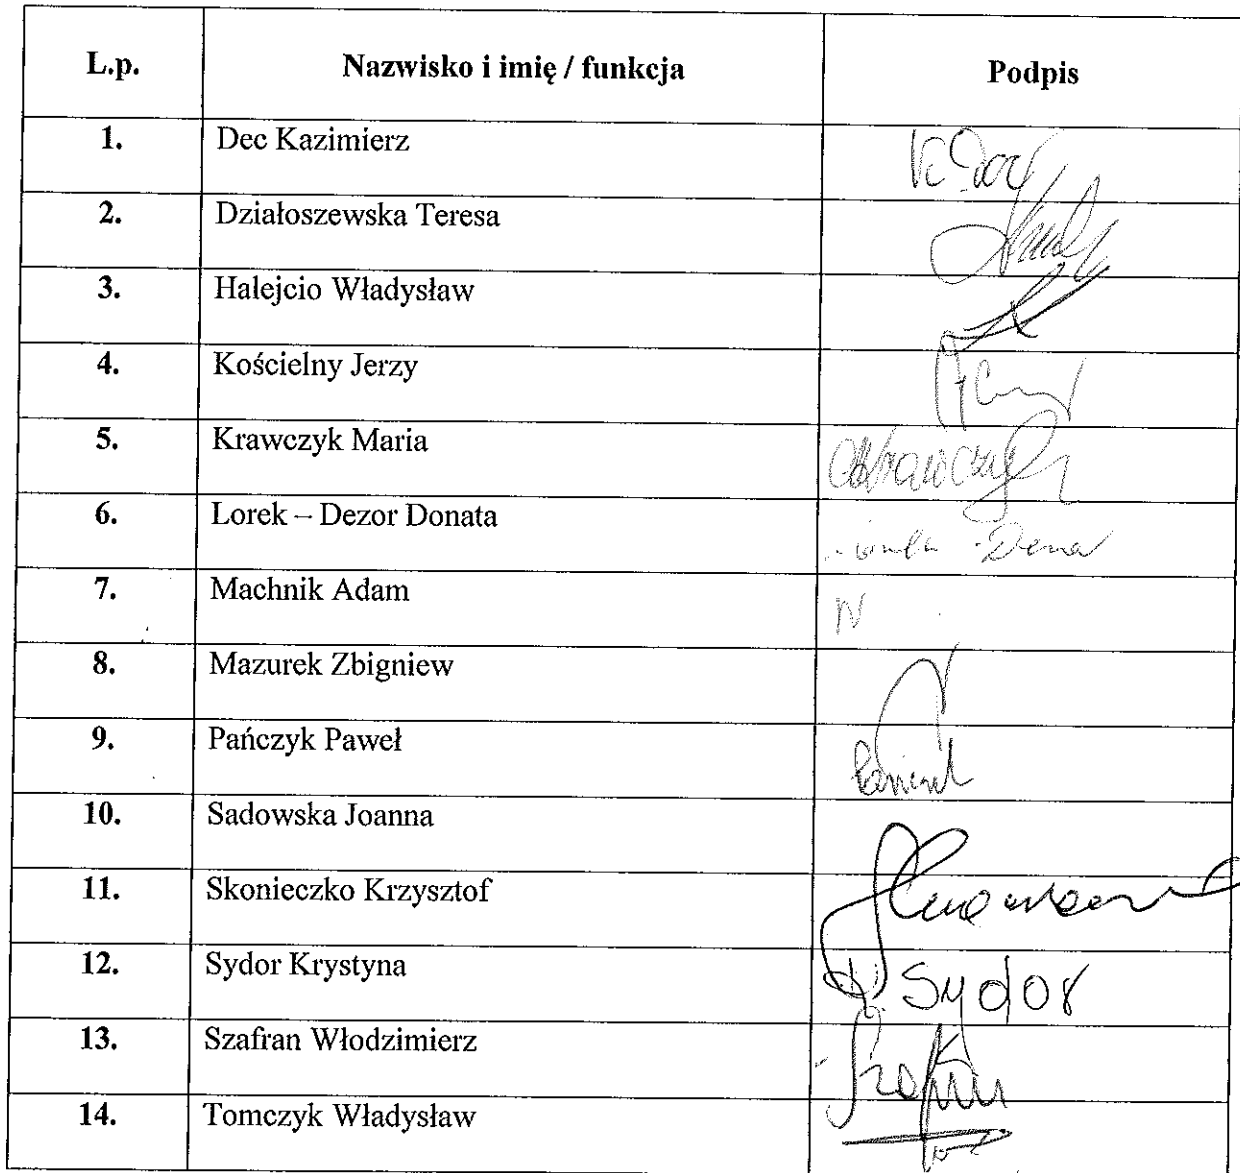 L.p. Nazwisko i imię / funkcja Podpis
1. Dec Kazimierz
2. Działoszewska Teresa
3. Halejcio Władysław
4. Kościelny Jerzy
5. Krawczyk Maria Krawczyk
6. Lorek – Dezor Donata
7. Machnik Adam
8. Mazurek Zbigniew
9. Pańczyk Paweł
10. Sadowska Joanna
11. Skonieczko Krzysztof
12. Sydor Krystyna Sydor
13. Szafran Włodzimierz
14. Tomczyk Władysław